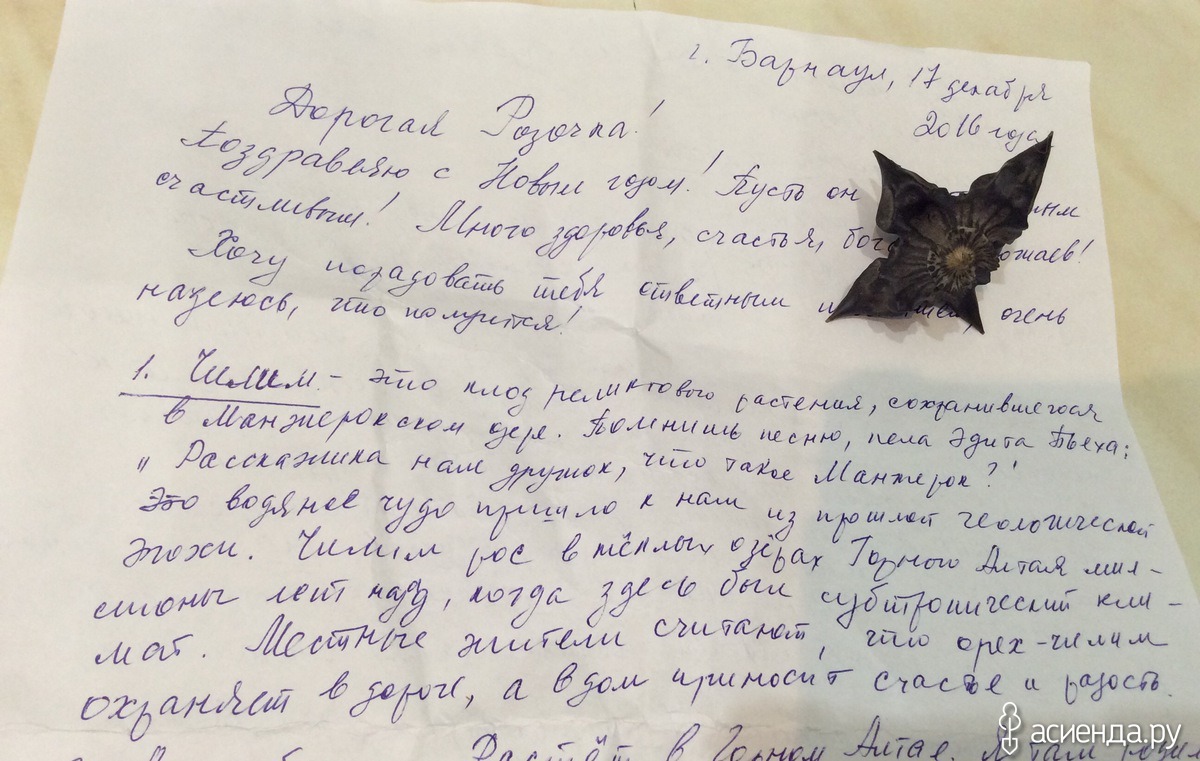 г. Барнаул, 17 декабря
2016 года
Дорогая Розочка!
Поздравляю с Новым годом! Пусть он
счастливым! Много здоровья, счастья,
Хочу порадовать тебя ответным очень
надеюсь, что получится!
1. Чилим - это плод реликтового растения, сохранившегося
в Манжерокском озере. Помнишь песню, пела Эдита Пьеха:
"Расскажика нам дружок, что такое Манжерок?"
Это водяное чудо пришло к нам из прошлой геологической
эпохи. Чилим рос в тёплых озёрах Горного Алтая мил-
лионы лет назад, когда здесь был субтропический кли-
мат. Местные жители считают, что орех-чилим
охраняет в дороге, а в дом приносит счастье и радость.
Растёт в Горном Алтае.
асиенда.ру